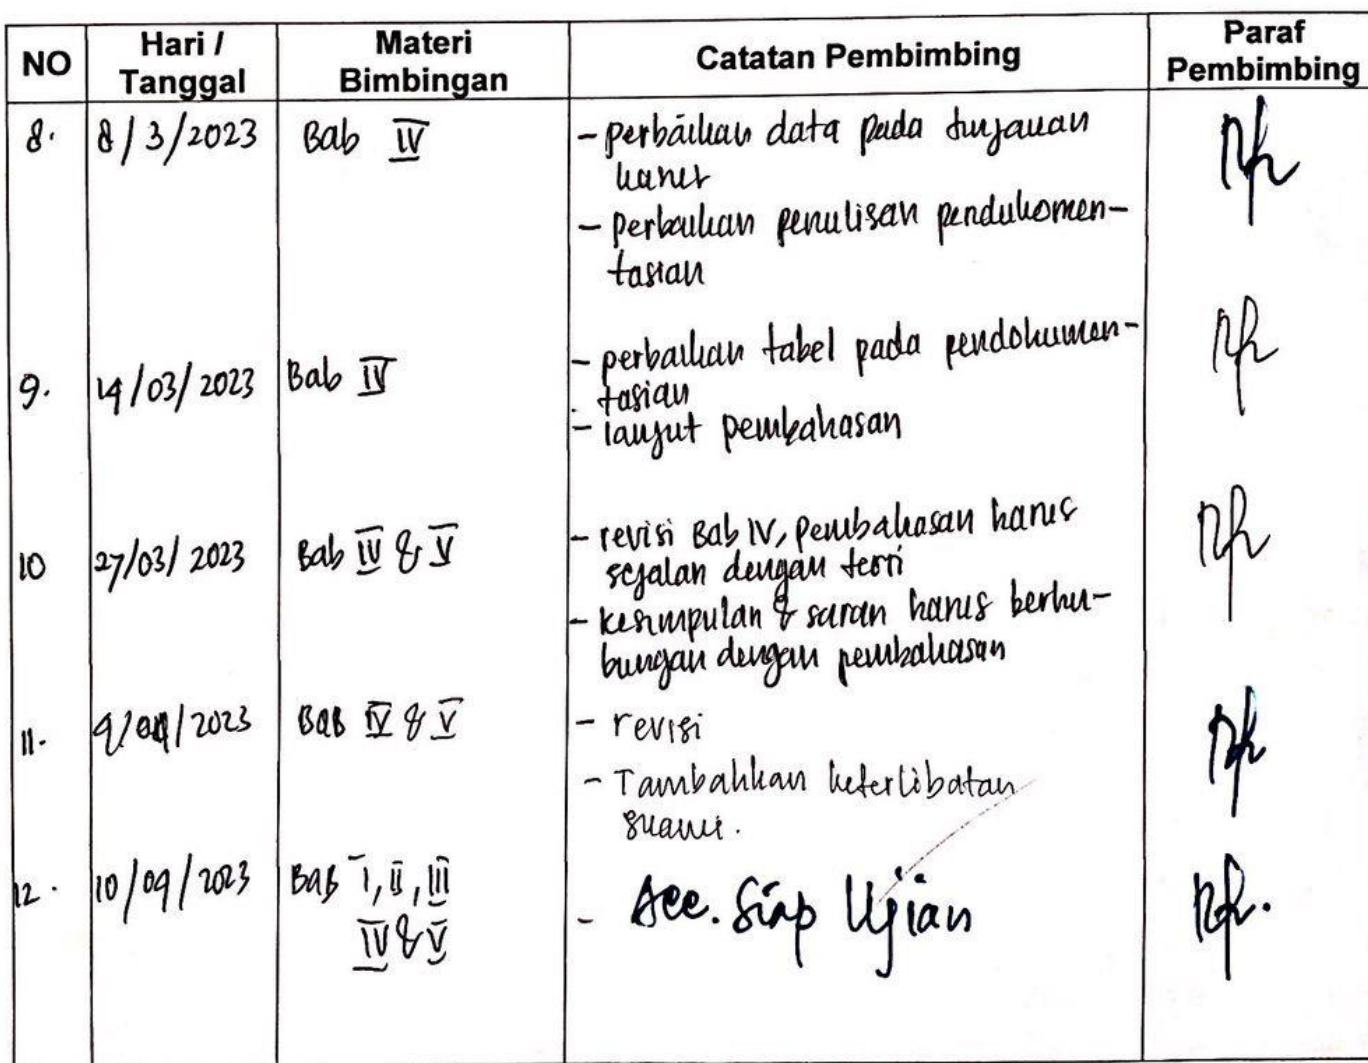 NO Hari / Tanggal Materi Bimbingan Catatan Pembimbing Paraf Pembimbing
8. 8/3/2023 Bab IV - perbaikan data pada tinjauan
kasus
- Perbaikan penulisan pendukomen-
tasian
9. 14/03/2023 Bab IV - perbaikan tabel pada pendokumen-
tasian
- lanjut pembahasan
10 27/03/2023 Bab IV & V - revisi Bab IV, pembahasan harus
sejalan dengan teori
- kesimpulan & saran harus berhu-
bungan dengan pembahasan
11. 2023 BAB IV & V - revisi
- Tambahkan keterlibatan
suami.
12. 10/09/2023 BAB I, II, III
IV & V - Acc. Siap Ujian